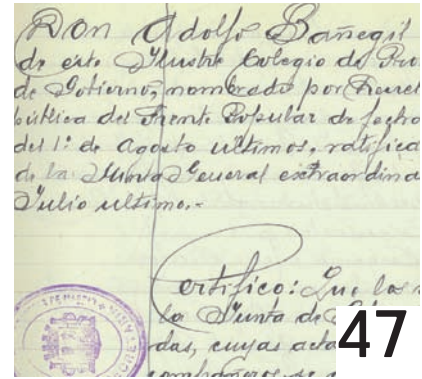 Don Adolfo Bañegil
de este Ilustre Colegio de Pro
de Gobierno, nombrado por
pública del Frente Popular de fecha
del 1º de Agosto ultimos, ratifica
de la General extraordina
Julio ultimo.-
ertifico: Que los
la Junta de
das, cuyas acta
compañeros se
47